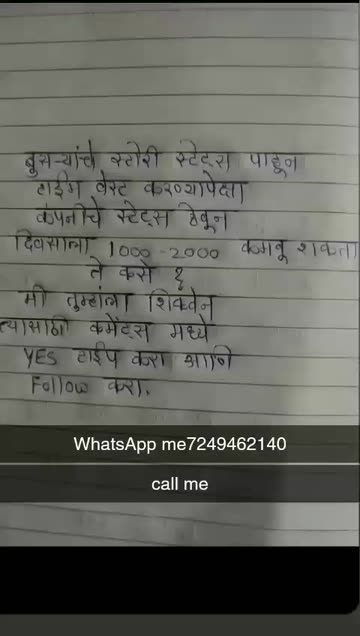 दुसऱ्यांचे स्टोरी स्टेट्स पाहून
टाईम वेस्ट करण्यापेक्षा
कंपनीचे स्टेट्स ठेवून
दिवसाला 1000-2000 कमवू शकता
ते कसे ?
मी तुम्हांला शिकवेन
त्यासाठी कमेंट्स मध्ये
YES टाईप करा आणि
Follow करा.
WhatsApp me7249462140
call me